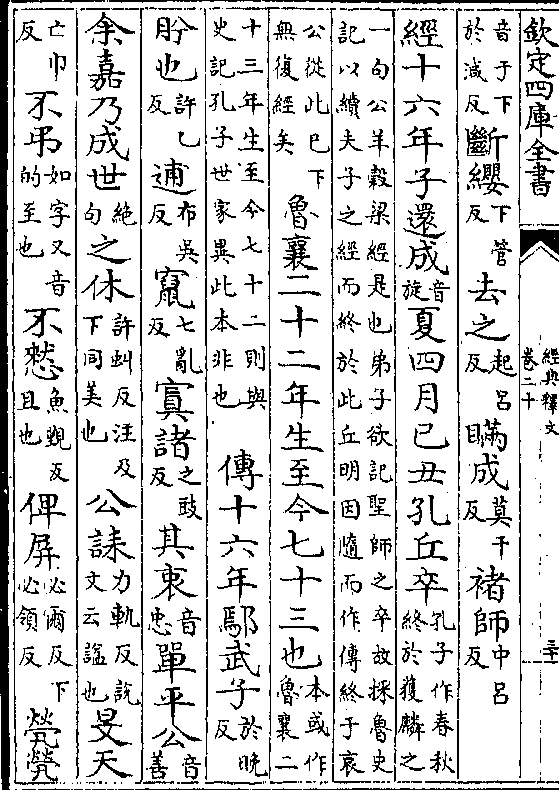 欽定四庫全書
經典釋文
卷二十
音于下於減反斷纓下管反去之起呂反瞞成莫干反褚師中呂反
經十六年子還成音旋夏四月已丑孔丘卒孔子作春秋終於獲麟之
一句公羊榖梁經是也弟子欲記聖師之卒故採魯史記以續夫子之經而終於此丘明因隨而作傳終于哀
公從此已下無復經矣魯襄二十二年生至今七十三也本或作魯襄二
十三年生至今七十二則與史記孔子世家異此本非也傳十六年鄢武子於晚反
肸也許乙反逋布吳反竄七亂反寘諸之豉反其衷音忠單平公音善
余嘉乃成世絕句之休許虯反注及下同美也公誄力軌反說文云諡也旻天
亡巾反不弔如字又音的至也不憖魚覲反且也俾屏必爾反下必領反煢煢